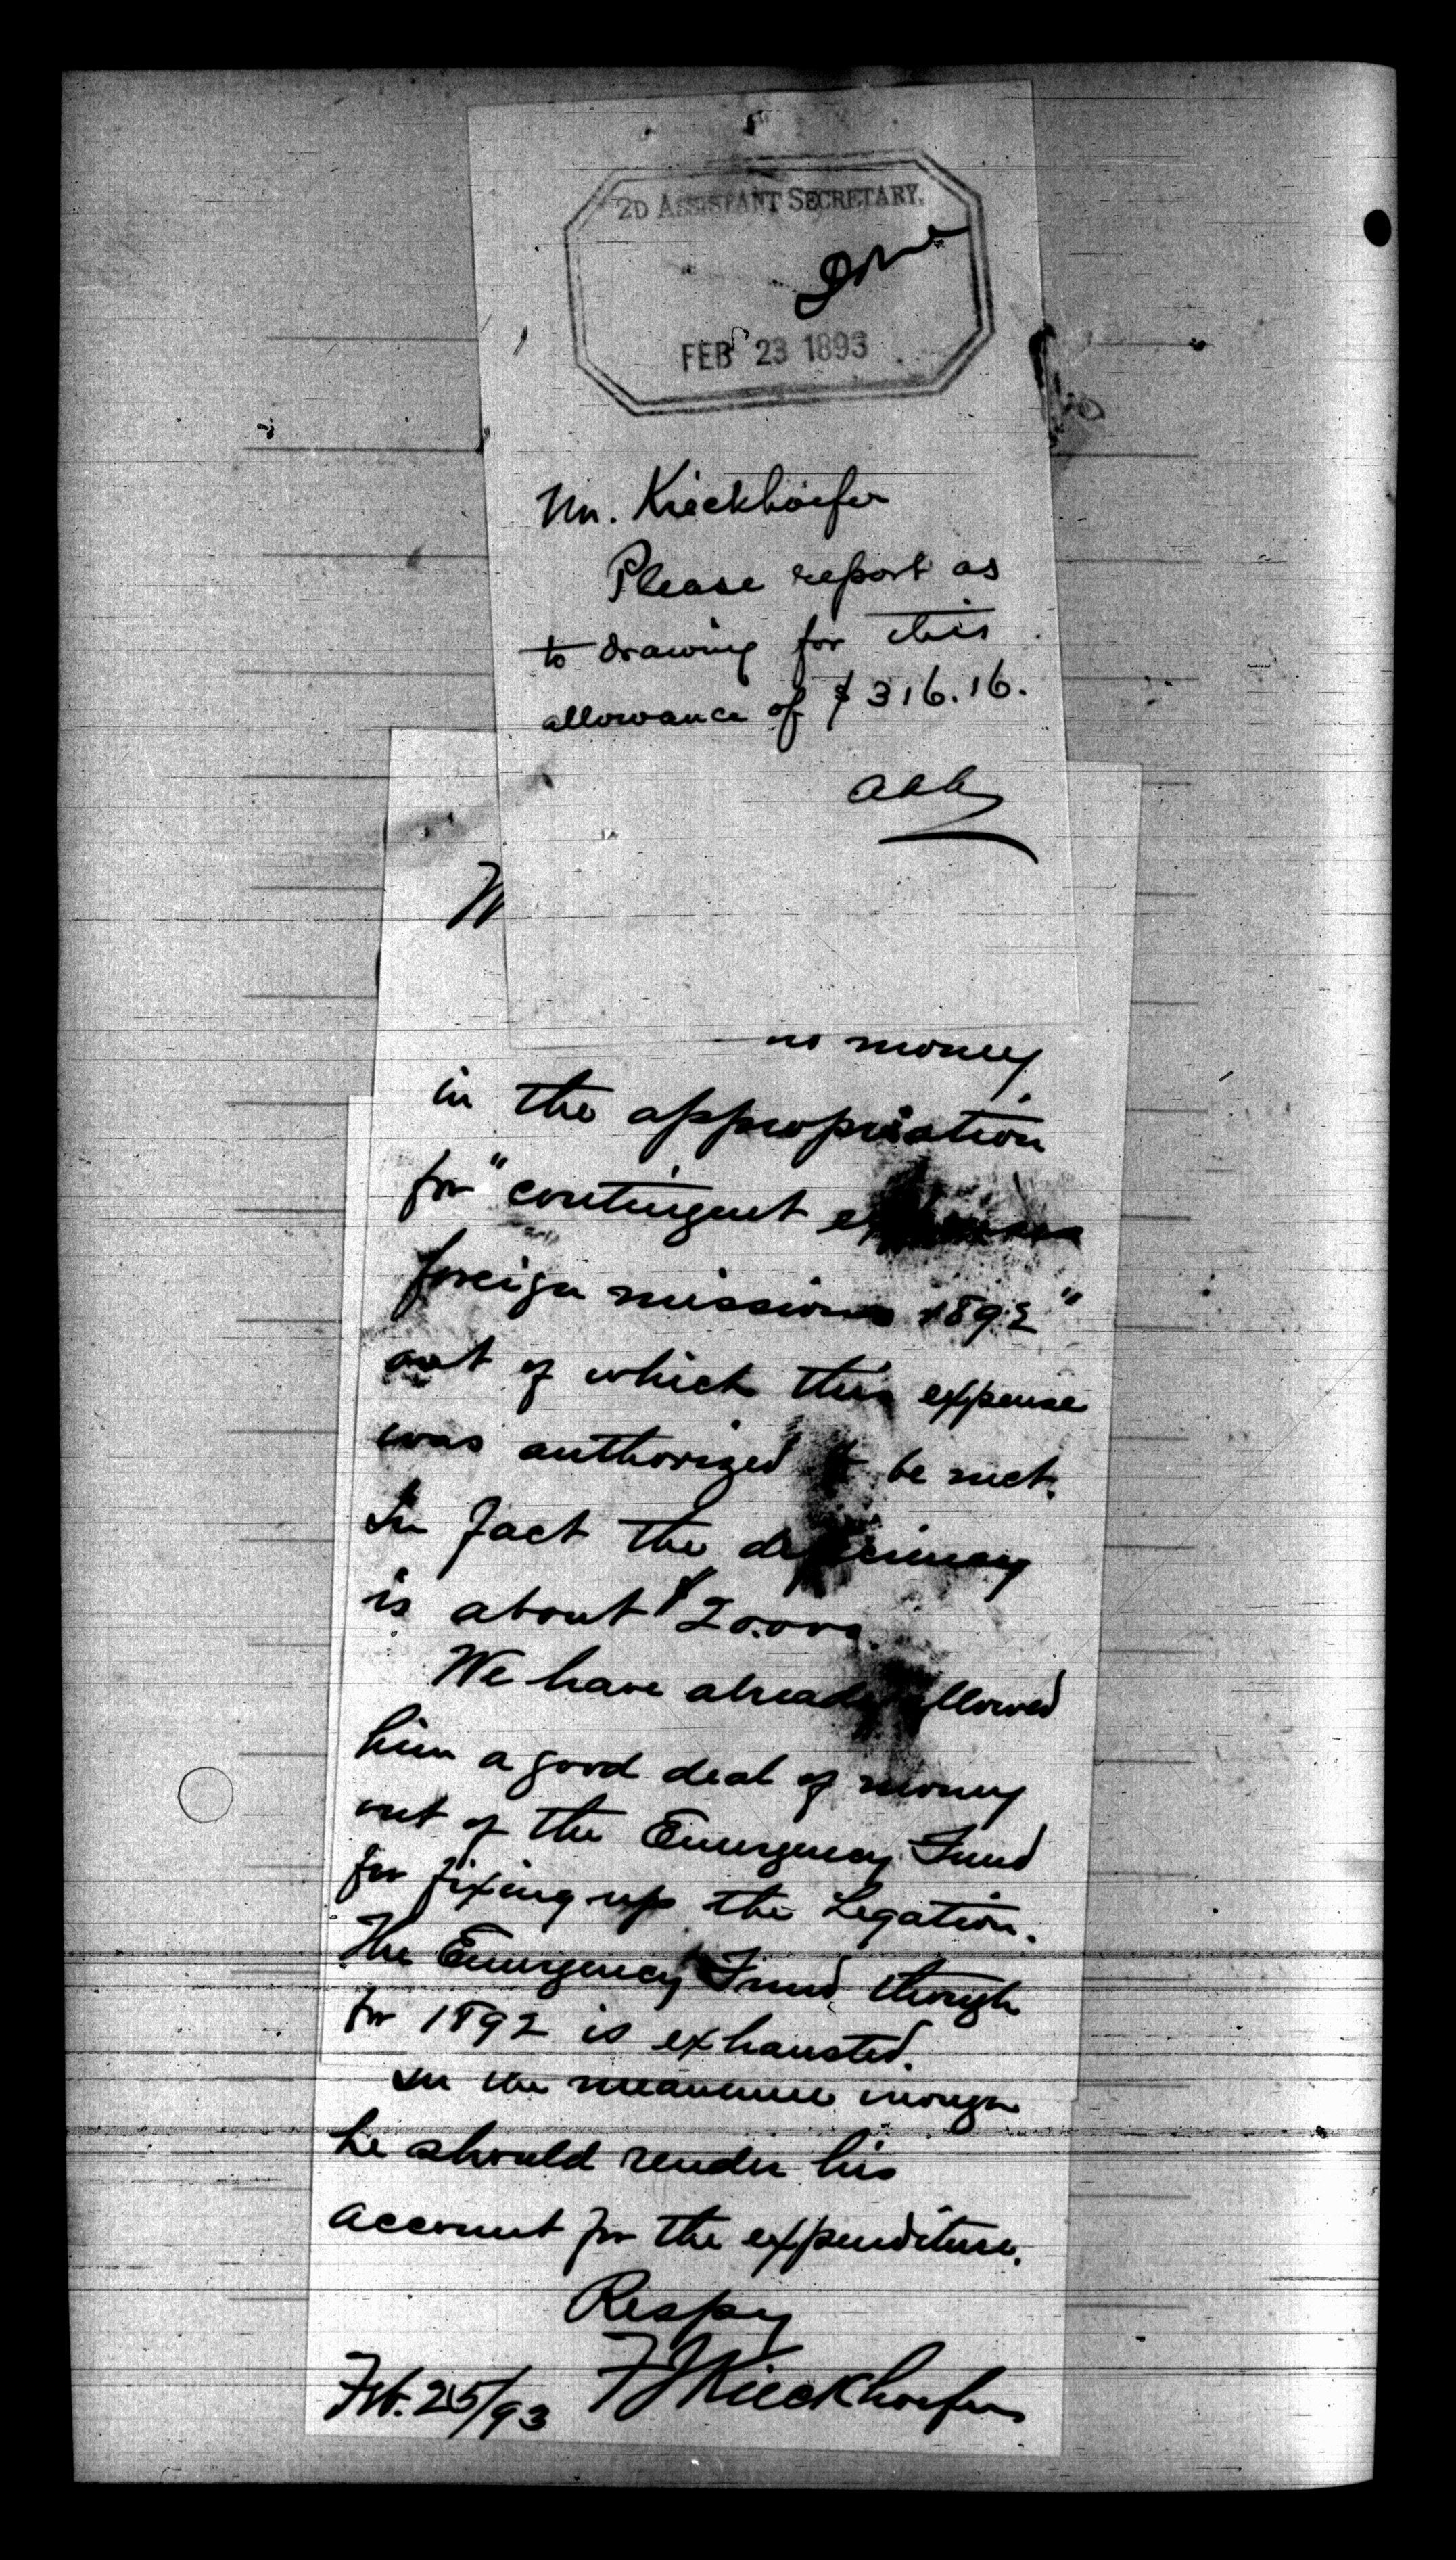 2D ASSISTANT SECRETARY.
FEB 23 1893
Mr. Kieckhoefer
Please report as
to drawing for this
allowance of $316.16.
no money
in the appropriation
for "contingent expenses
foreign missions 1892"
out of which this expense
was authorized to be met.
In fact the deficiency
is about $20.000.
We have already allowed
him a good deal of money
out of the Emergency Fund
for fixing up the Legation.
The Emergency Fund though
for 1892 is exhausted.
In the meantime though
he should render his
account for the expenditure.
Respy
F J Kieckhoefer
Feb. 25/93